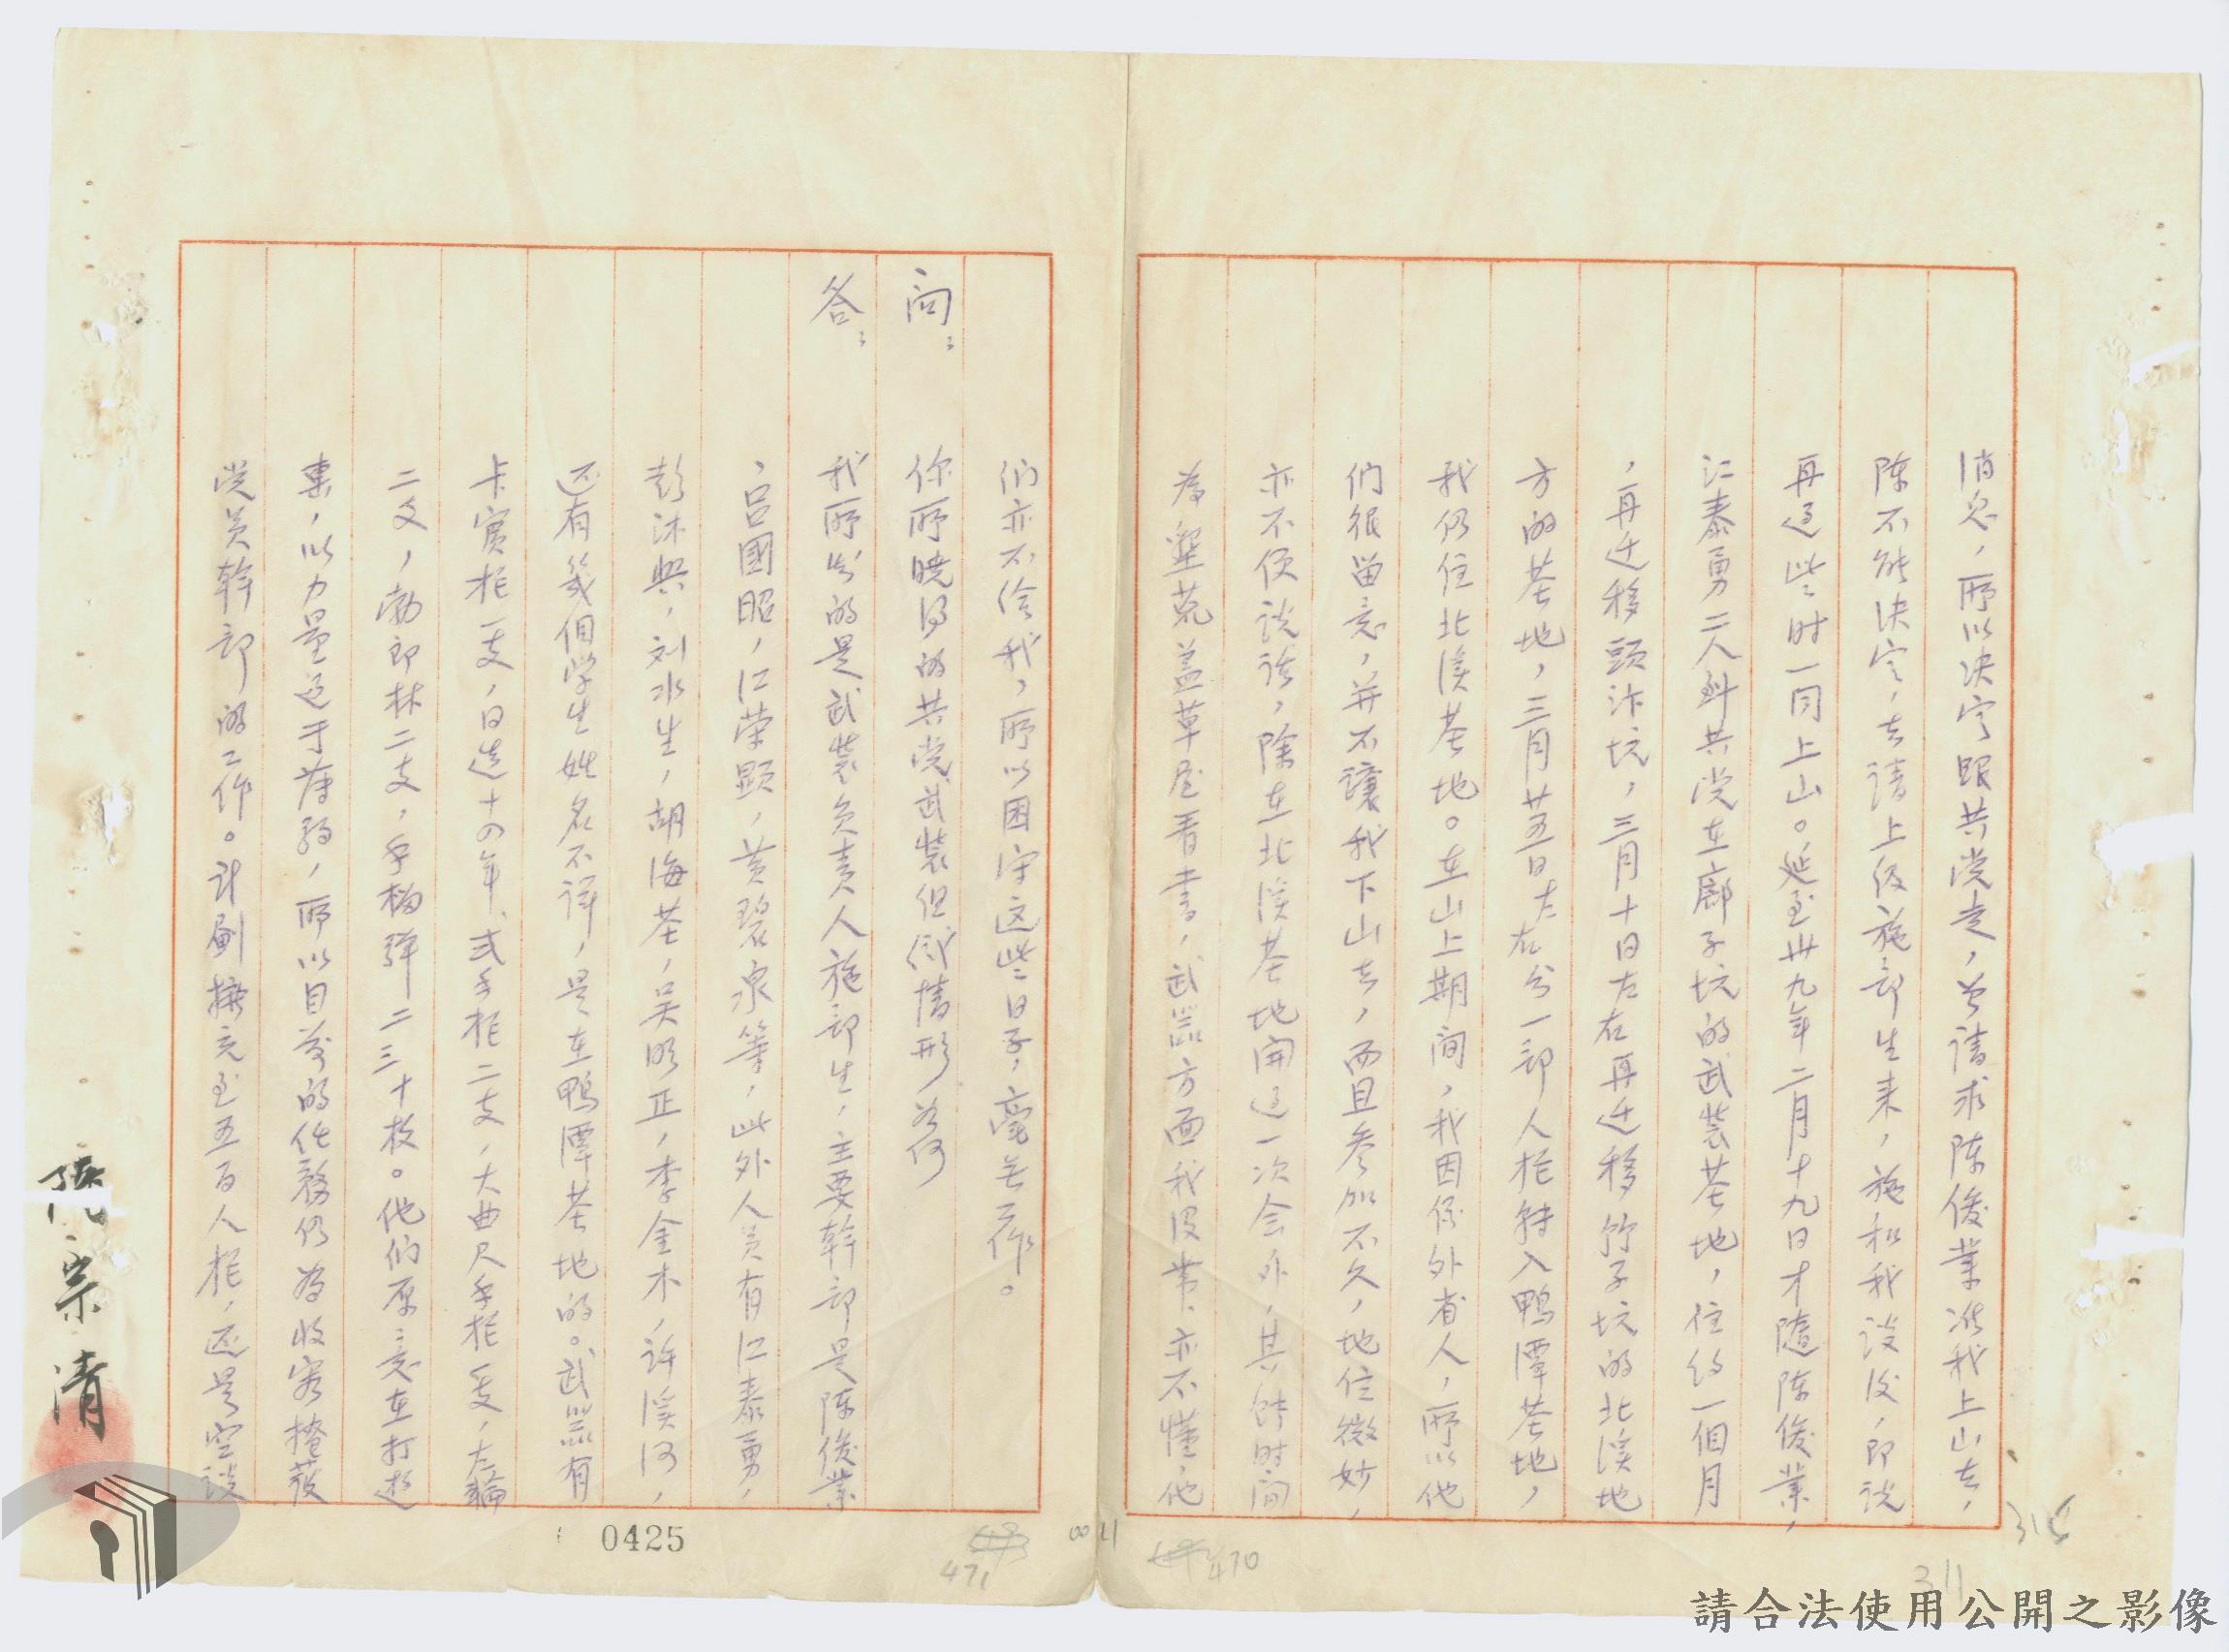 消息，所以決定跟共党走，曾請求陈俊業准我上山去，
陈不能決定，去請上级施部生来，施和我談後，即説
再过些时一同上山。延至卅九年二月十九日才隨陈俊業，
江泰勇二人到共党在廍子坑的武装基地，住约一個月
，再迁移頭汴坑，三月十日左右再迁移竹子坑的北溪地
方的基地，三月廿五日左右分一部人枪轉入鴨潭基地，
我仍住北溪基地。在山上期间，我因係外省人，所以他
们很留意，并不讓我下山去，而且参加不久，地位微妙，
亦不便談話，除在北溪基地開过一次会外，其餘时间
為墾荒盖草屋看書，武器方面我没带，亦不懂，他
们亦不给我，所以困守这些日子，毫无工作。
問： 你所曉得的共党武装組織情形為何
答： 我所知的是武装负责人施部生，主要幹部是陈俊業
，呂國昭，江荣顯，黄碧泉等，此外人员有江泰勇，
彭沐興，刘水生，胡海基，吴明正，李金木，許溪河，
还有幾個学生姓名不詳，是在鴨潭基地的。武器有
卡賓枪一支，日造十四年式手枪二支，大曲尺手枪一支，左輪
二支，勃郎林二支，手榴弹二三十枚。他们原意在打游
擊，以力量过于薄弱，所以目前的任務仍為收容掩蔽
党员幹部的工作。計劃擴充至五百人枪，还是空談
陳宗清
0425
0011
471
470
316
311
請合法使用公開之影像